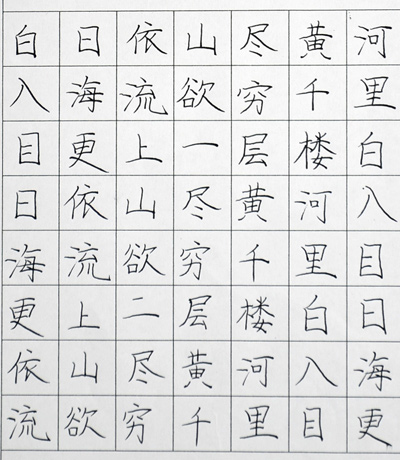 白日依山尽黄河
入海流欲穷千里
目更上一层楼白
日依山尽黄河入
海流欲穷千里目
更上二层楼白日
依山尽黄河入海
流欲穷千里目更